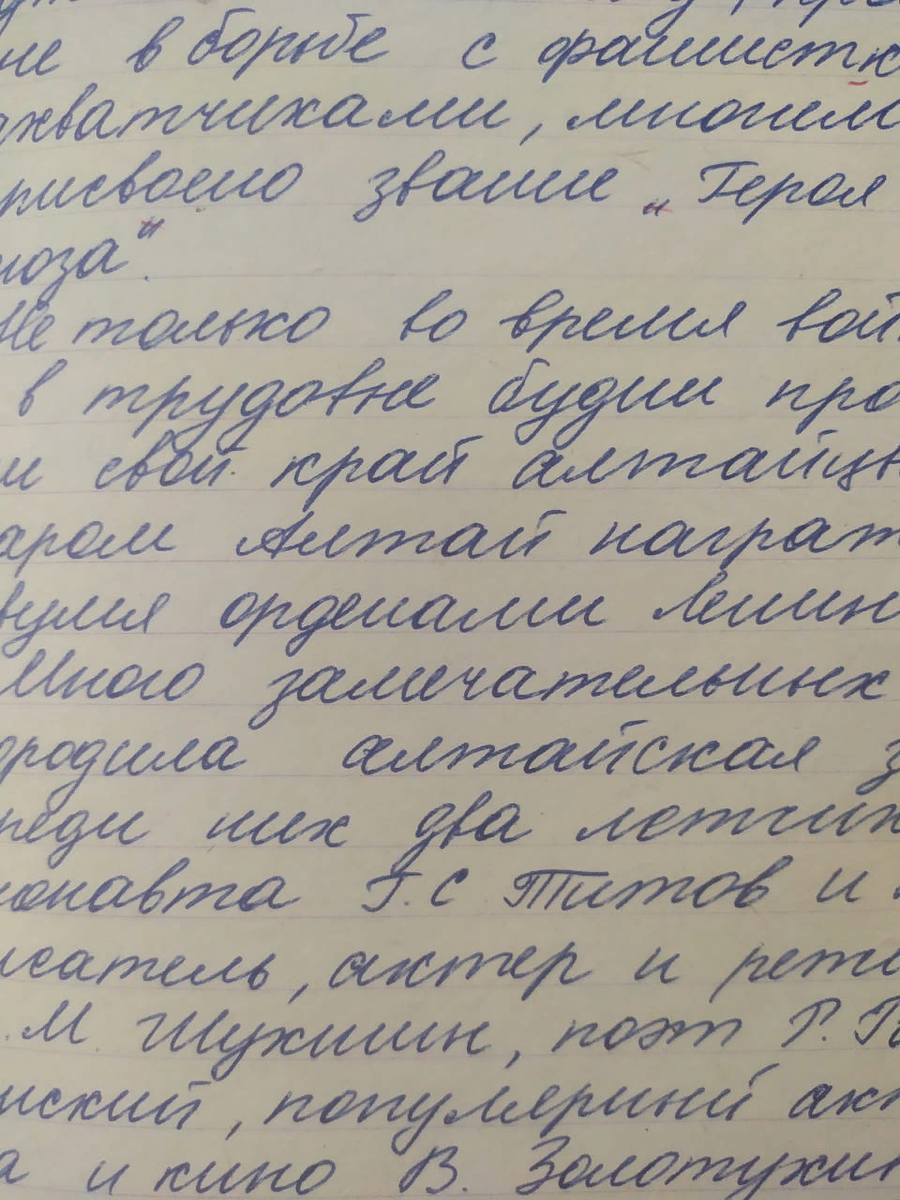 не в борьбе с фашистк
ахватчиками, многим
рисвоено звание „Героя
юза".
Не только во время вой
в трудовые будни про
и свой край алтайцы
аром Алтай награж
вумя орденами Ленин
Много замечательных
ородила алтайская з
реди них два летчик
монавта Г.С Титов и
исатель, актер и режи
.М. Шукшин, поэт Р. Р
нский, популярный акт
а и кино В. Золотухин